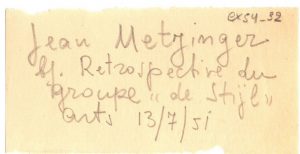 ex54_32
Jean Metzinger
Retrospective du
groupe "de Stijl"
arts 13/7/51